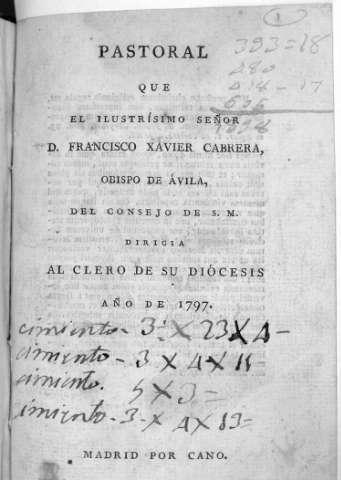 1
PASTORAL
393=18
QUE
280
EL ILUSTRÍSIMO SEÑOR
D. FRANCISCO XAVIER CABRERA,
OBISPO DE ÁVILA,
DEL CONSEJO DE S. M.
DIRIGIA
AL CLERO DE SU DIÓCESIS
AÑO DE 1797.
cimiento - 3 X 23 X 4 =
cimiento - 3 X 4 X 11 =
cimiento. X 3 =
cimiento - 3 X 4 X 13 =
MADRID POR CANO.